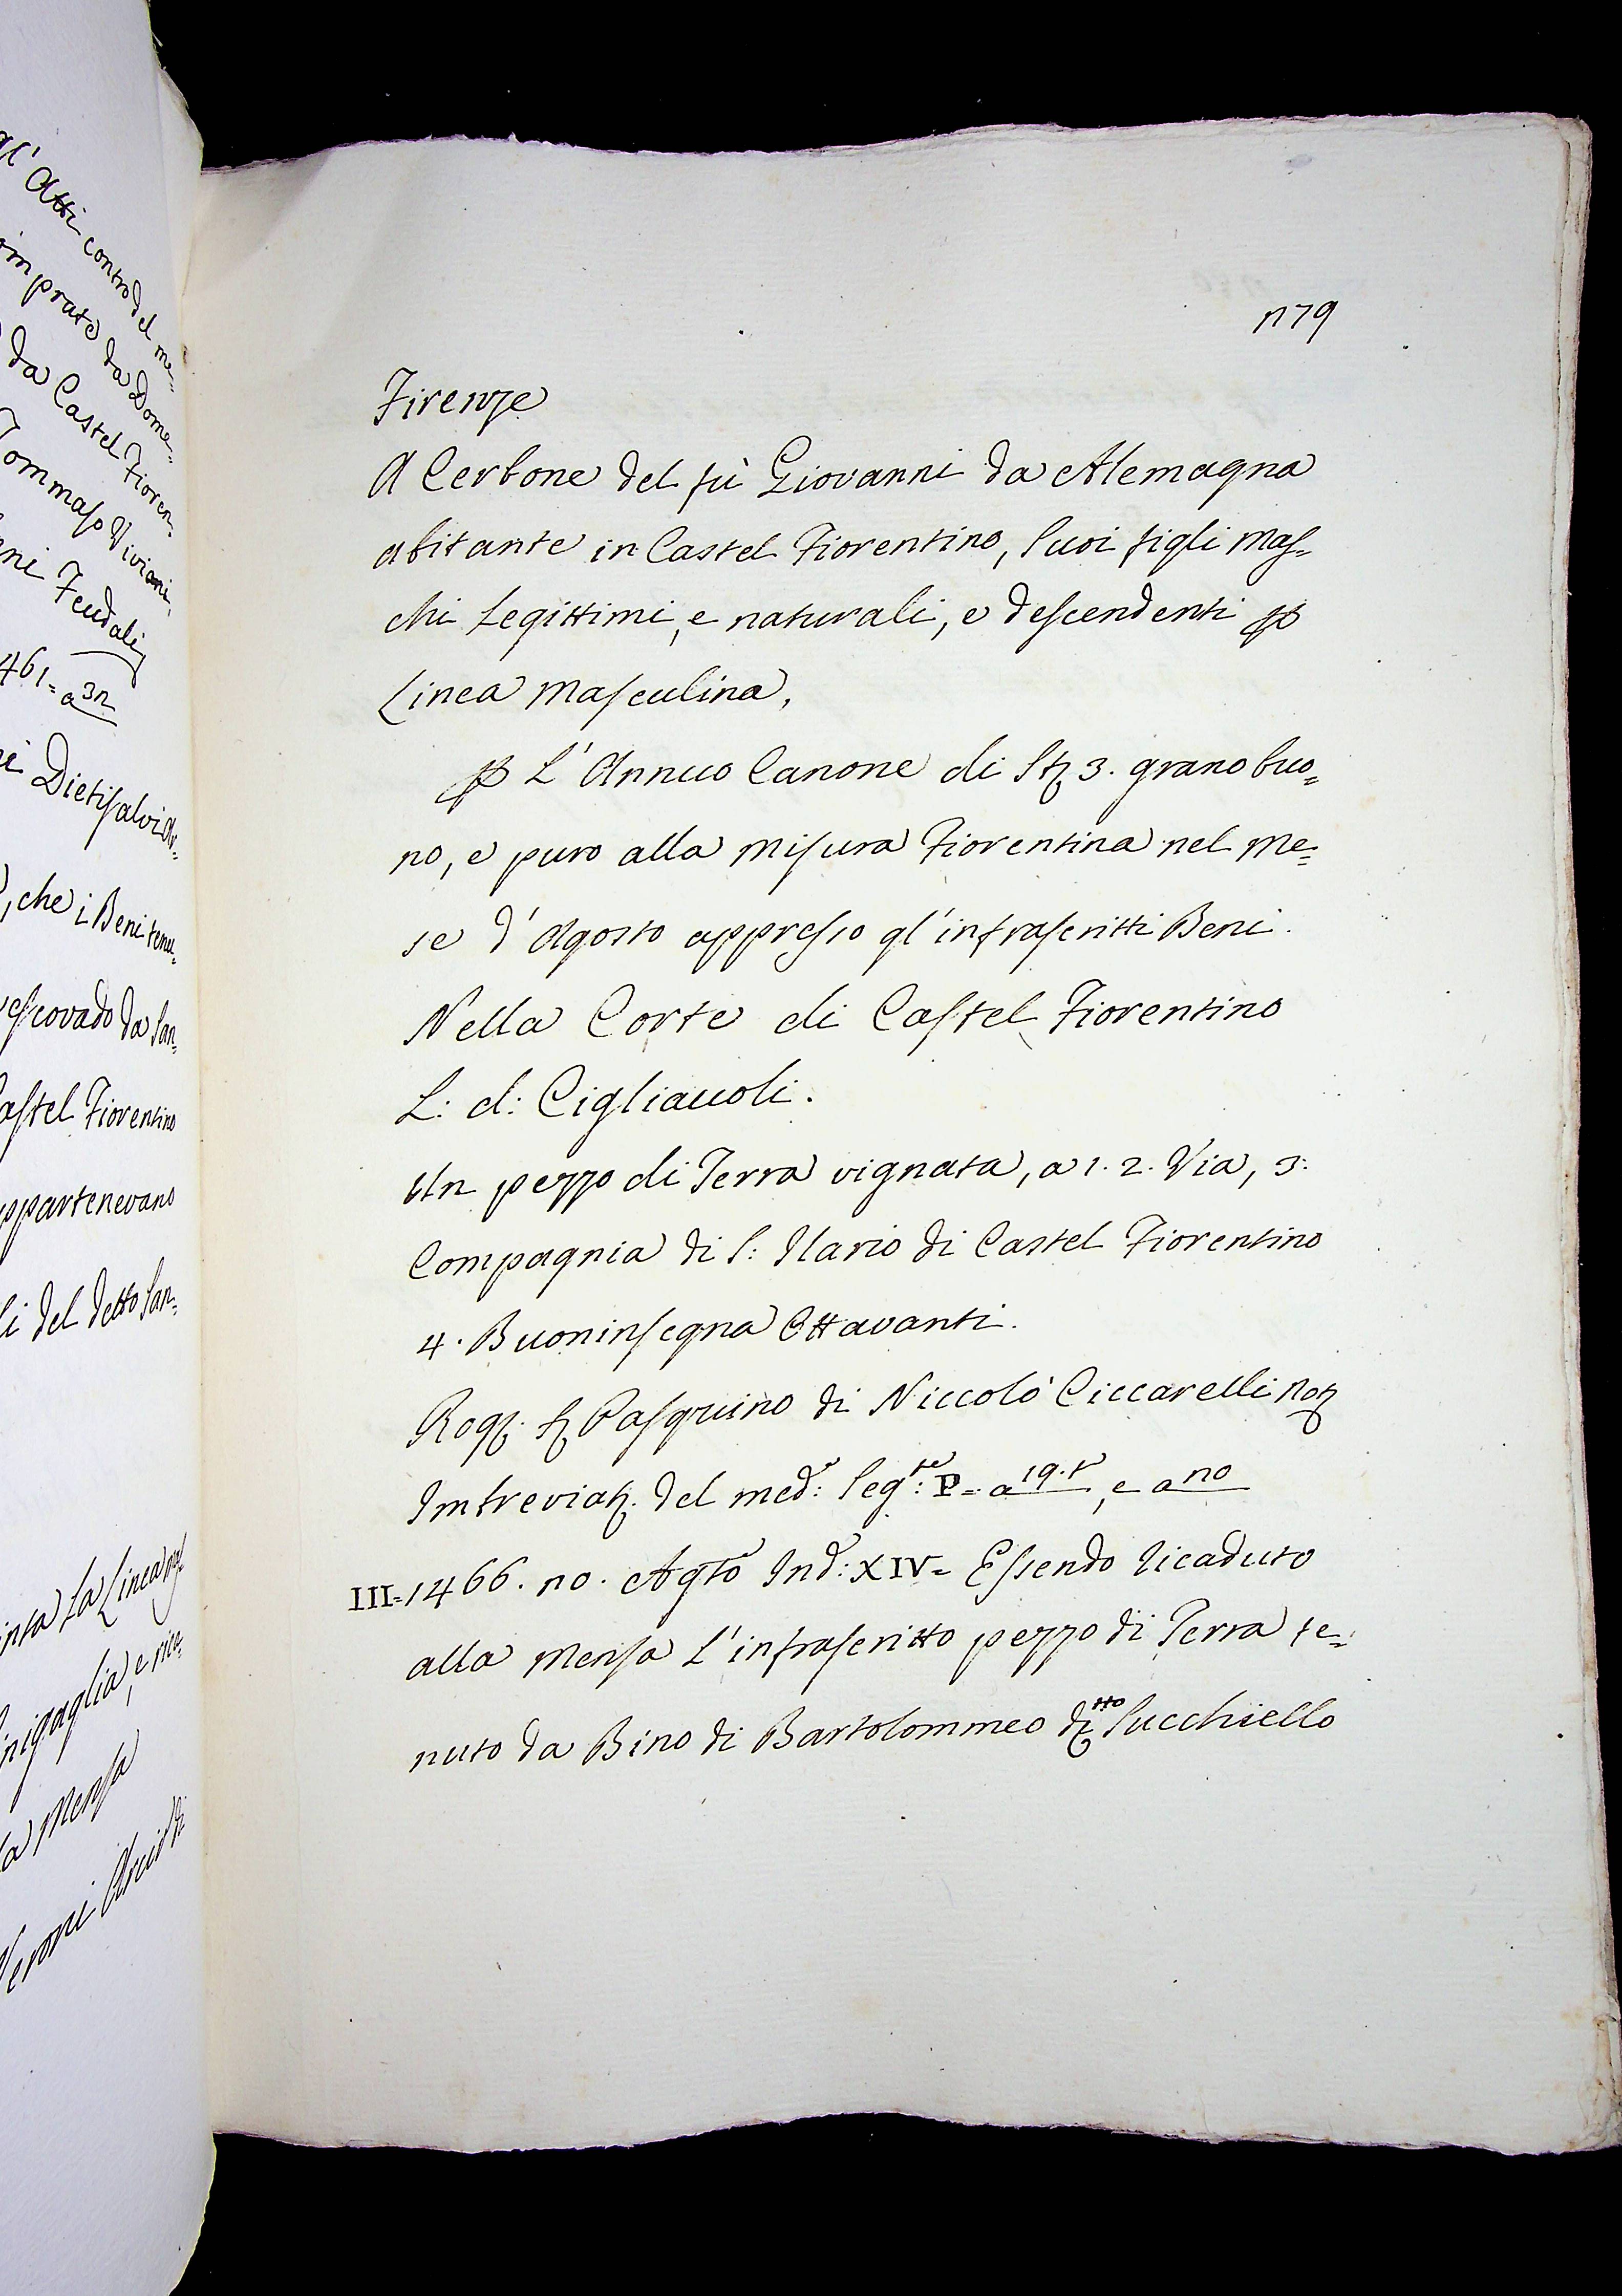 gl' Atti contro del me=
comprate da Dome=
da Castel Fioren=
Tommaso Viviani,
Feudali
461= a 3n
Dietisalvi
, che i Beni tenu=
escovado da San=
Castel Fiorentino
appartenevano
del detto San=
La Linea
nigaglia, e rice=
Mensa
n79
Firenze
A Cerbone del fù Giovanni da Alemagna
abitante in Castel Fiorentino, Suoi figli Mas=
chi Legittimi, e naturali, e descendenti ꝑ
Linea Masculina,
ꝑ L' Annuo Canone di Sta 3. grano buo=
no, e puro alla Misura Fiorentina nel Me=
se d' Agosto appresso gl' infrascritti Beni.
Nella Corte di Castel Fiorentino
L: d: Cigliauoli.
Un pezzo di Terra vignata, a 1. 2. Via, 3:
Compagnia di S: Ilario di Castel Fiorentino
4. Buoninsegna Ottavanti.
Rog. Pasquino di Niccolò Ciccarelli Not
Imbreviat. del med: Seg.te: P= a 19.t, e a no
III=1466. no. Agto Ind: XIV= Essendo ricaduto
alla Mensa L' infrascritto pezzo di Terra te=
nuto da Bino di Bartolommeo dtto Succhiello